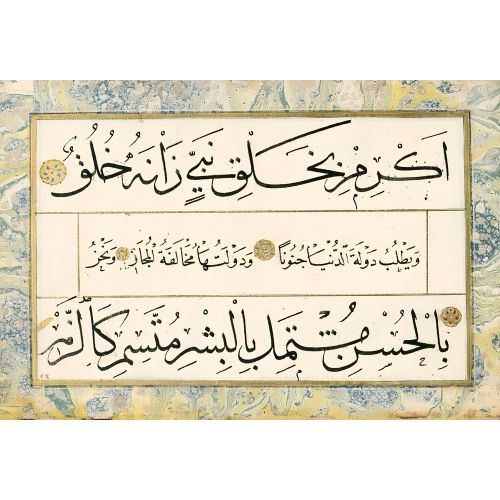 اَكْرِمْ بِخَلْقِ نَبِيٍّ زَانَهُ خُلُقٌ
وَيَطْلُبُ دَوْلَةَ الدُّنْيَا جُنُونًا وَدَوْلَتُهَا مُخَالَفَةُ الْمَجَازِ وَنَحْنُ
بِالْحُسْنِ مُشْتَمِلٍ بِالْبِشْرِ مُتَّسِمِ كَالزَّهْرِ